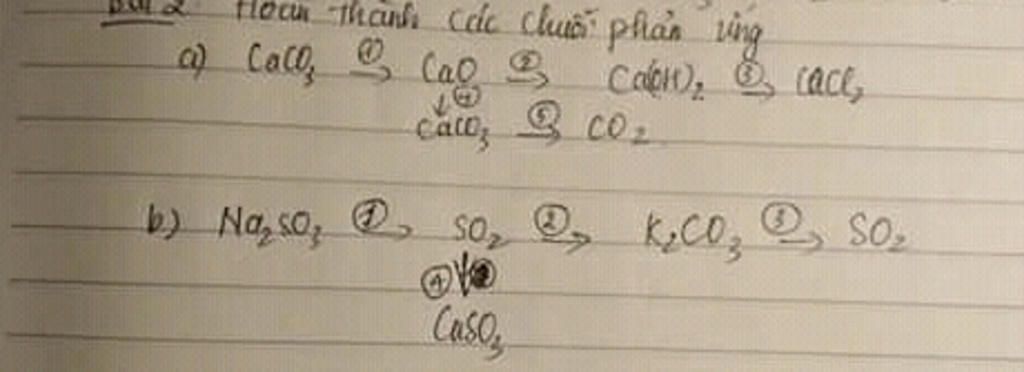 Bài 2 Hoàn thành các chuỗi phản ứng
a) CaCO₃ →① CaO →② Ca(OH)₂ →③ CaCl₂
↓④
CaCO₃ →⑤ CO₂
b) Na₂SO₃ →① SO₂ →② K₂CO₃ →③ SO₂
④↓
CaSO₃